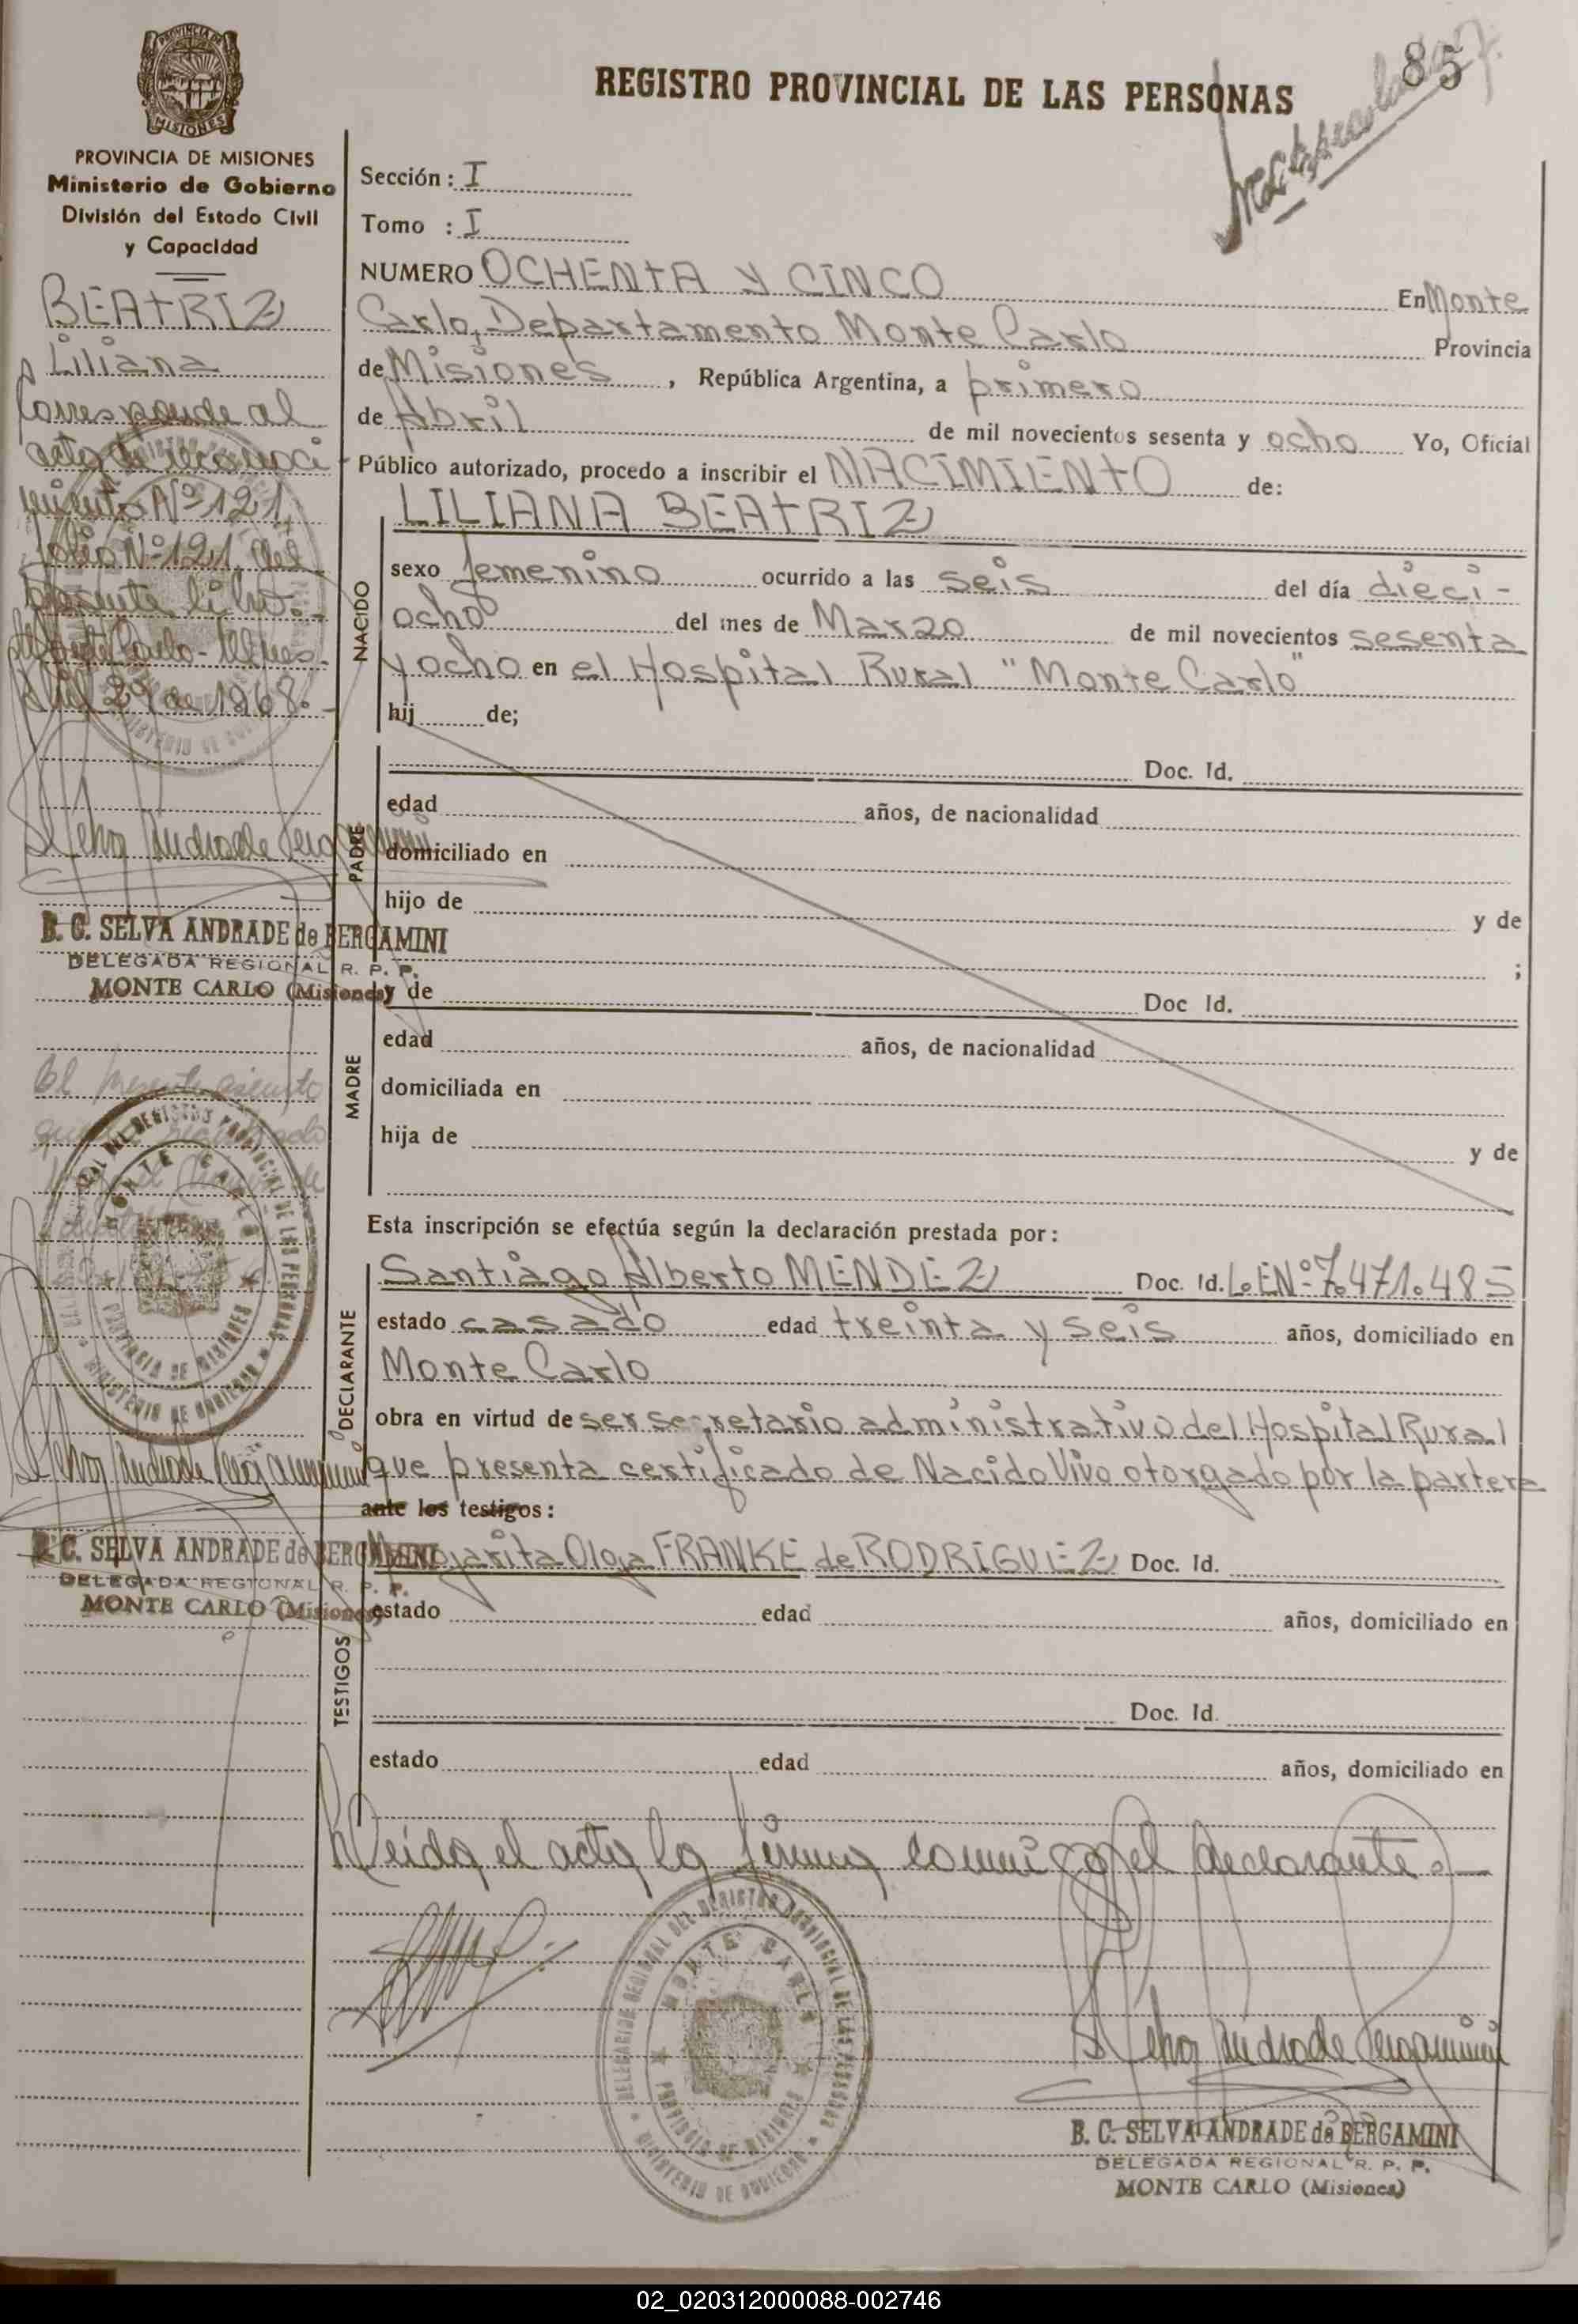 85
REGISTRO PROVINCIAL DE LAS PERSONAS
PROVINCIA DE MISIONES
Ministerio de Gobierno
División del Estado Civil
y Capacidad
BEATRIZ
Liliana
Corresponde al
acta de reconoci
miento Nº 121,
folio Nº 121, del
presente libro.-
Monte Carlo - Mnes
Abril 29 de 1968.-
B. C. SELVA ANDRADE de BERGAMINI
DELEGADA REGIONAL R. P. P.
MONTE CARLO (Misiones)
El presente asiento
B. C. SELVA ANDRADE de BERGAMINI
DELEGADA REGIONAL R. P. P.
MONTE CARLO (Misiones)
Sección: I
Tomo : I
NUMERO OCHENTA Y CINCO En Monte
Carlo, Departamento Monte Carlo Provincia
de Misiones, República Argentina, a primero
de Abril de mil novecientos sesenta y ocho Yo, Oficial
Público autorizado, procedo a inscribir el NACIMIENTO de:
LILIANA BEATRIZ
NACIDO
sexo femenino ocurrido a las seis del día dieci-
ocho del mes de Marzo de mil novecientos sesenta
y ocho en el Hospital Rural "Monte Carlo"
hij de;
PADRE
Doc. Id.
edad años, de nacionalidad
domiciliado en
hijo de y de
;
MADRE
y de Doc Id.
edad años, de nacionalidad
domiciliada en
hija de y de
Esta inscripción se efectúa según la declaración prestada por:
DECLARANTE
Santiago Alberto MENDEZ Doc. Id. L.E Nº 7.471.485
estado casado edad treinta y seis años, domiciliado en
Monte Carlo
obra en virtud de ser secretario administrativo del Hospital Rural
que presenta certificado de Nacido Vivo otorgado por la partera
ante los testigos:
TESTIGOS
Margarita Olga FRANKE de RODRIGUEZ Doc. Id.
estado edad años, domiciliado en
Doc. Id.
estado edad años, domiciliado en
Leida el acta la firma conmigo el declarante.-
DELEGACION REGIONAL DEL REGISTRO PROVINCIAL DE LAS PERSONAS
MONTE CARLO
PROVINCIA DE MISIONES
MINISTERIO DE GOBIERNO
B. C. SELVA ANDRADE de BERGAMINI
DELEGADA REGIONAL R. P. P.
MONTE CARLO (Misiones)
02_020312000088-002746